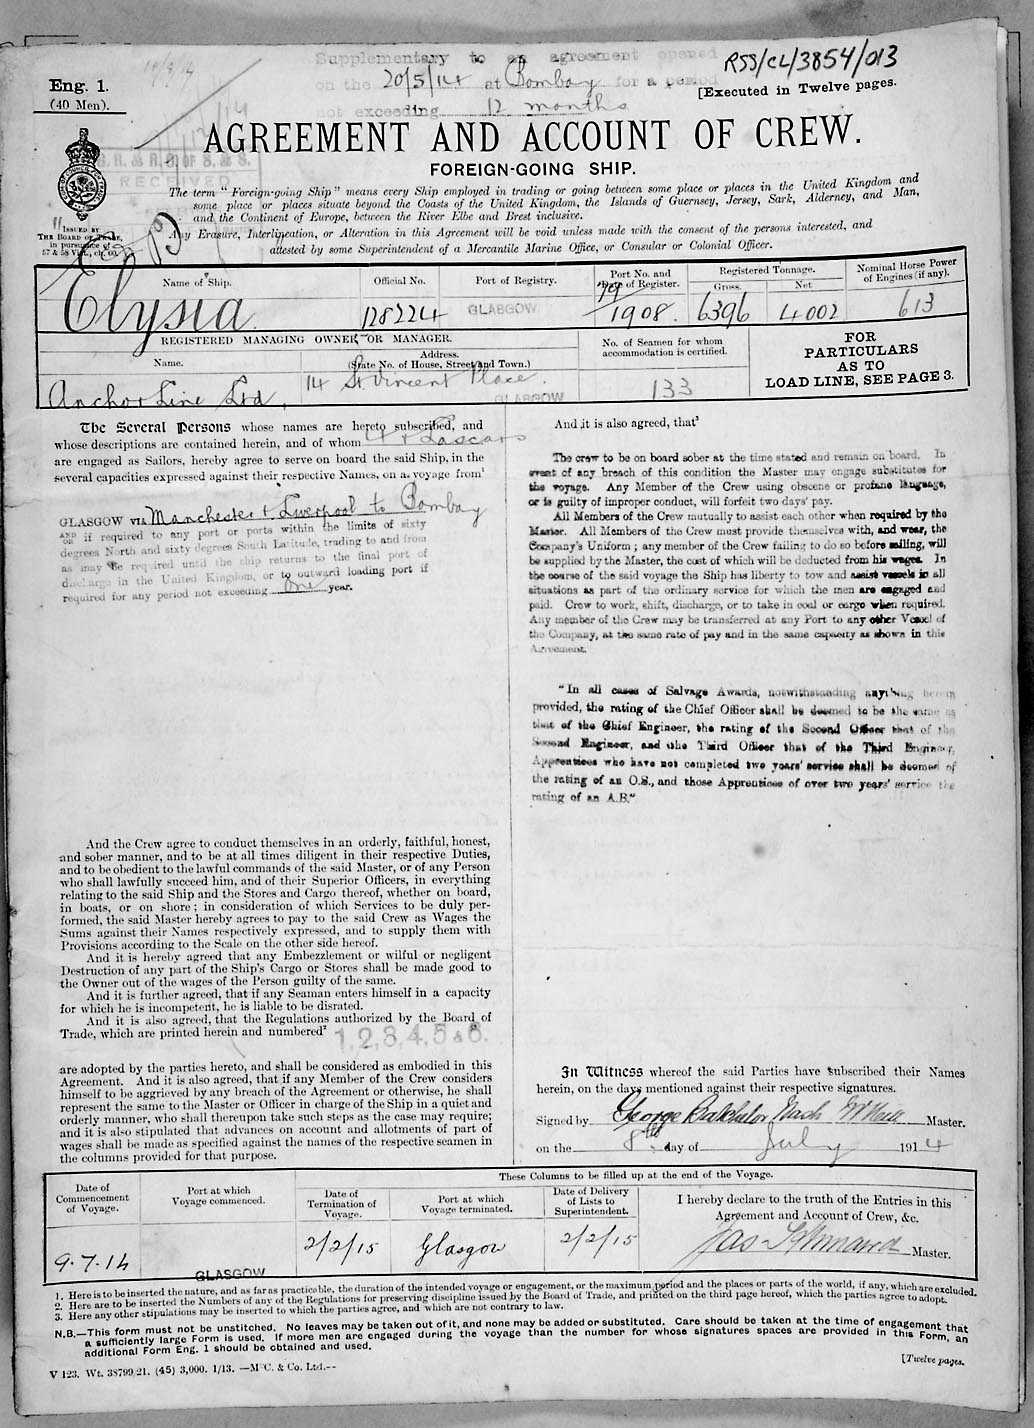 Supplementary to an agreement opened
on the 20/5/14 at Bombay for a period
not exceeding 12 months
RSS/CL/3854/013
Eng. 1.
(40 Men).
[Executed in Twelve pages.
AGREEMENT AND ACCOUNT OF CREW.
FOREIGN-GOING SHIP.
G. R. & R. G. OF S. & S.
RECEIVED
The term "Foreign-going Ship" means every Ship employed in trading or going between some place or places in the United Kingdom and
some place or places situate beyond the Coasts of the United Kingdom, the Islands of Guernsey, Jersey, Sark, Alderney, and Man,
and the Continent of Europe, between the River Elbe and Brest inclusive.
Any Erasure, Interlineation, or Alteration in this Agreement will be void unless made with the consent of the persons interested, and
attested by some Superintendent of a Mercantile Marine Office, or Consular or Colonial Officer.
ISSUED BY
THE BOARD OF TRADE,
in pursuance of
57 & 58 Vict., ch. 60.
Name of Ship.
Official No.
Port of Registry.
Port No. and
Date of Register.
Registered Tonnage.
Gross.
Net
Nominal Horse Power
of Engines (if any).
Elysia
128224
GLASGOW
79/1908.
6396
4002
613
REGISTERED MANAGING OWNER OR MANAGER.
Name.
Address.
(State No. of House, Street and Town.)
No. of Seamen for whom
accommodation is certified.
FOR
PARTICULARS
AS TO
LOAD LINE, SEE PAGE 3.
Anchor Line Ltd.
14 St Vincent Place.
GLASGOW
133
The Several Persons whose names are hereto subscribed, and
whose descriptions are contained herein, and of whom 4 + Lascars
are engaged as Sailors, hereby agree to serve on board the said Ship, in the
several capacities expressed against their respective Names, on a voyage from¹
GLASGOW VIA Manchester & Liverpool to Bombay
AND OR if required to any port or ports within the limits of sixty
degrees North and sixty degrees South Latitude, trading to and from
as may be required until the ship returns to the final port of
discharge in the United Kingdom, or to outward loading port if
required for any period not exceeding one year.
And the Crew agree to conduct themselves in an orderly, faithful, honest,
and sober manner, and to be at all times diligent in their respective Duties,
and to be obedient to the lawful commands of the said Master, or of any Person
who shall lawfully succeed him, and of their Superior Officers, in everything
relating to the said Ship and the Stores and Cargo thereof, whether on board,
in boats, or on shore; in consideration of which Services to be duly per-
formed, the said Master hereby agrees to pay to the said Crew as Wages the
Sums against their Names respectively expressed, and to supply them with
Provisions according to the Scale on the other side hereof.
And it is hereby agreed that any Embezzlement or wilful or negligent
Destruction of any part of the Ship's Cargo or Stores shall be made good to
the Owner out of the wages of the Person guilty of the same.
And it is further agreed, that if any Seaman enters himself in a capacity
for which he is incompetent, he is liable to be disrated.
And it is also agreed, that the Regulations authorized by the Board of
Trade, which are printed herein and numbered² 1,2,3,4,5 & 6.
are adopted by the parties hereto, and shall be considered as embodied in this
Agreement. And it is also agreed, that if any Member of the Crew considers
himself to be aggrieved by any breach of the Agreement or otherwise, he shall
represent the same to the Master or Officer in charge of the Ship in a quiet and
orderly manner, who shall thereupon take such steps as the case may require;
and it is also stipulated that advances on account and allotments of part of
wages shall be made as specified against the names of the respective seamen in
the columns provided for that purpose.
And it is also agreed, that³
The crew to be on board sober at the time stated and remain on board. In
event of any breach of this condition the Master may engage substitutes for
the voyage. Any Member of the Crew using obscene or profane language,
or is guilty of improper conduct, will forfeit two days' pay.
All Members of the Crew mutually to assist each other when required by the
Master. All Members of the Crew must provide themselves with, and wear, the
Company's Uniform; any member of the Crew failing to do so before sailing, will
be supplied by the Master, the cost of which will be deducted from his wages. In
the course of the said voyage the Ship has liberty to tow and assist vessels in all
situations as part of the ordinary service for which the men are engaged and
paid. Crew to work, shift, discharge, or to take in coal or cargo when required.
Any member of the Crew may be transferred at any Port to any other Vessel of
the Company, at the same rate of pay and in the same capacity as shown in this
Agreement.
"In all cases of Salvage Awards, notwithstanding anything herein
provided, the rating of the Chief Officer shall be deemed to be the same as
that of the Chief Engineer, the rating of the Second Officer that of the
Second Engineer, and the Third Officer that of the Third Engineer,
Apprentices who have not completed two years' service shall be deemed of
the rating of an O.S., and those Apprentices of over two years' service the
rating of an A.B."
In Witness whereof the said Parties have subscribed their Names
herein, on the days mentioned against their respective signatures.
Signed by George Batchelor Master.
on the 8th day of July 1914
These Columns to be filled up at the end of the Voyage.
Date of
Commencement
of Voyage.
Port at which
Voyage commenced.
Date of
Termination of
Voyage.
Port at which
Voyage terminated.
Date of Delivery
of Lists to
Superintendent.
I hereby declare to the truth of the Entries in this
Agreement and Account of Crew, &c.
9.7.14
GLASGOW
2/2/15
Glasgow
2/2/15
Jas Master.
1. Here is to be inserted the nature, and as far as practicable, the duration of the intended voyage or engagement, or the maximum period and the places or parts of the world, if any, which are excluded.
2. Here are to be inserted the Numbers of any of the Regulations for preserving discipline issued by the Board of Trade, and printed on the third page hereof, which the parties agree to adopt.
3. Here any other stipulations may be inserted to which the parties agree, and which are not contrary to law.
N.B.—This form must not be unstitched. No leaves may be taken out of it, and none may be added or substituted. Care should be taken at the time of engagement that
a sufficiently large Form is used. If more men are engaged during the voyage than the number for whose signatures spaces are provided in this Form, an
additional Form Eng. 1 should be obtained and used.
V 123. Wt. 38799/21. (45) 3,000. 1/13. —McC. & Co. Ltd.--
[Twelve pages.